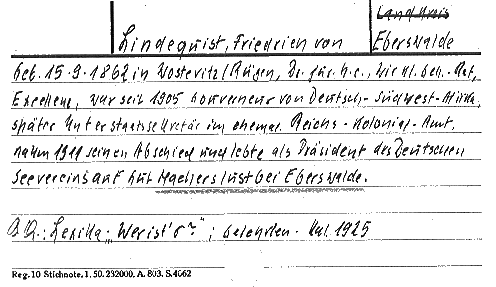 Landkreis
Lindequist, Friedrich von Eberswalde
Geb. 15.9.1862 in Wostevitz/Rügen, Dr. jur. h.c., Wirkl. Geh. Rat,
Exzellenz, war seit 1905 Gouverneur von Deutsch-Südwest-Afrika,
später Unterstaatssekretär im ehemal. Reichs-Kolonial-Amt,
nahm 1911 seinen Abschied und lebte als Präsident des Deutschen
Seevereins auf Gut Macherslust bei Eberswalde.
Lexika „Wer ist's?"; Gelehrten-Kal. 1925
Reg. 10 Stichnote. 1. 50. 232000. A. 803. S. 4062